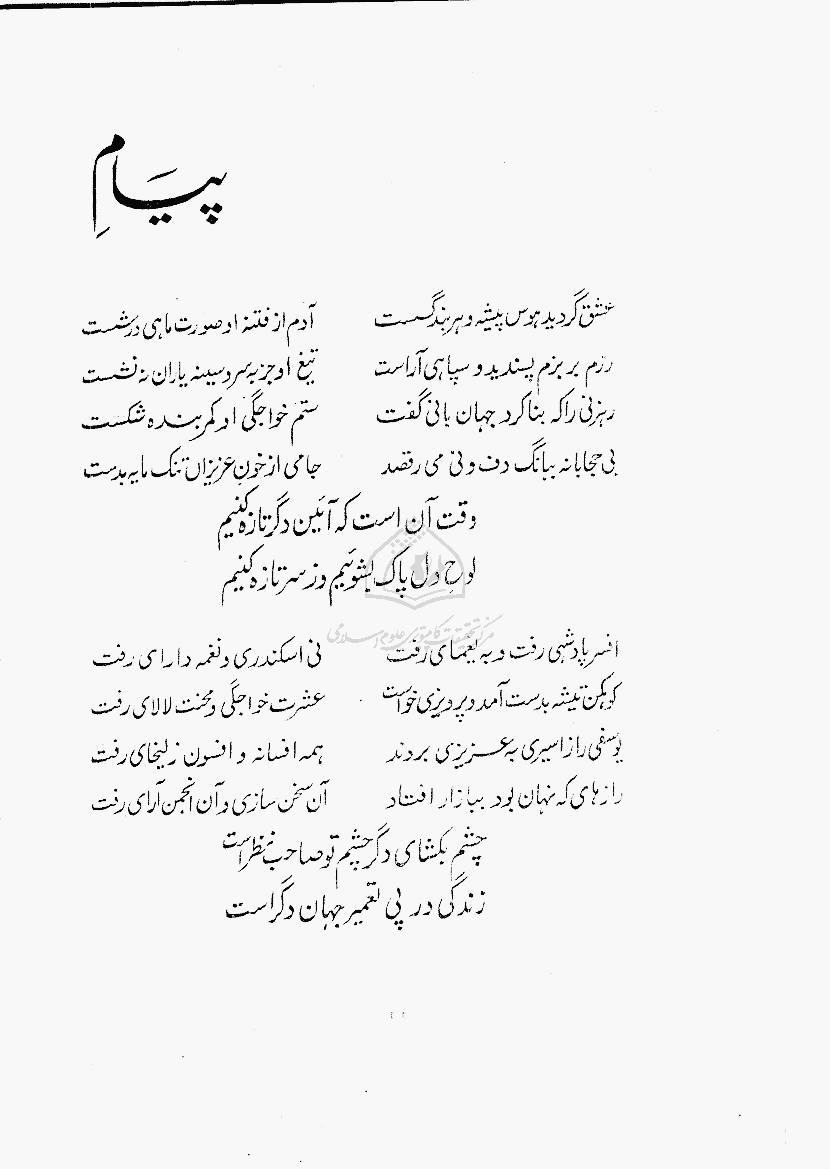 پیامِ
عشق گردید هوس پیشه و هر بند گسست آدم از فتنه او صورت ماهی در شست
رزم بر بزم پسندید و سپاهی آراست تیغ او جز به سر و سینه یاران نه نشست
رهزنی را که بنا کرد جهان بانی گفت ستم خواجگی او کمر بنده شکست
بی حجابانه ببانگ دف و نی می رقصد جامی از خونِ عزیزان تنک مایه بدست
وقت آن است که آئین دگر تازه کنیم
لوحِ دل پاک بشوئیم و ز سر تازه کنیم
مرکز تحقیقات کامپیوتری علوم اسلامی
افسر پادشهی رفت و به یغمای رفت نی اسکندری و نغمه دارای رفت
کوهکن تیشه بدست آمد و پرویزی خواست عشرت خواجگی و محنت لالای رفت
یوسفی را ز اسیری به عزیزی بردند همه افسانه و افسون زلیخای رفت
رازهای که نهان بود ببازار افتاد آن سخن سازی و آن انجمن آرای رفت
چشم بکشای دگر چشم تو صاحب نظر است
زندگی در پی تعمیر جهان دگر است